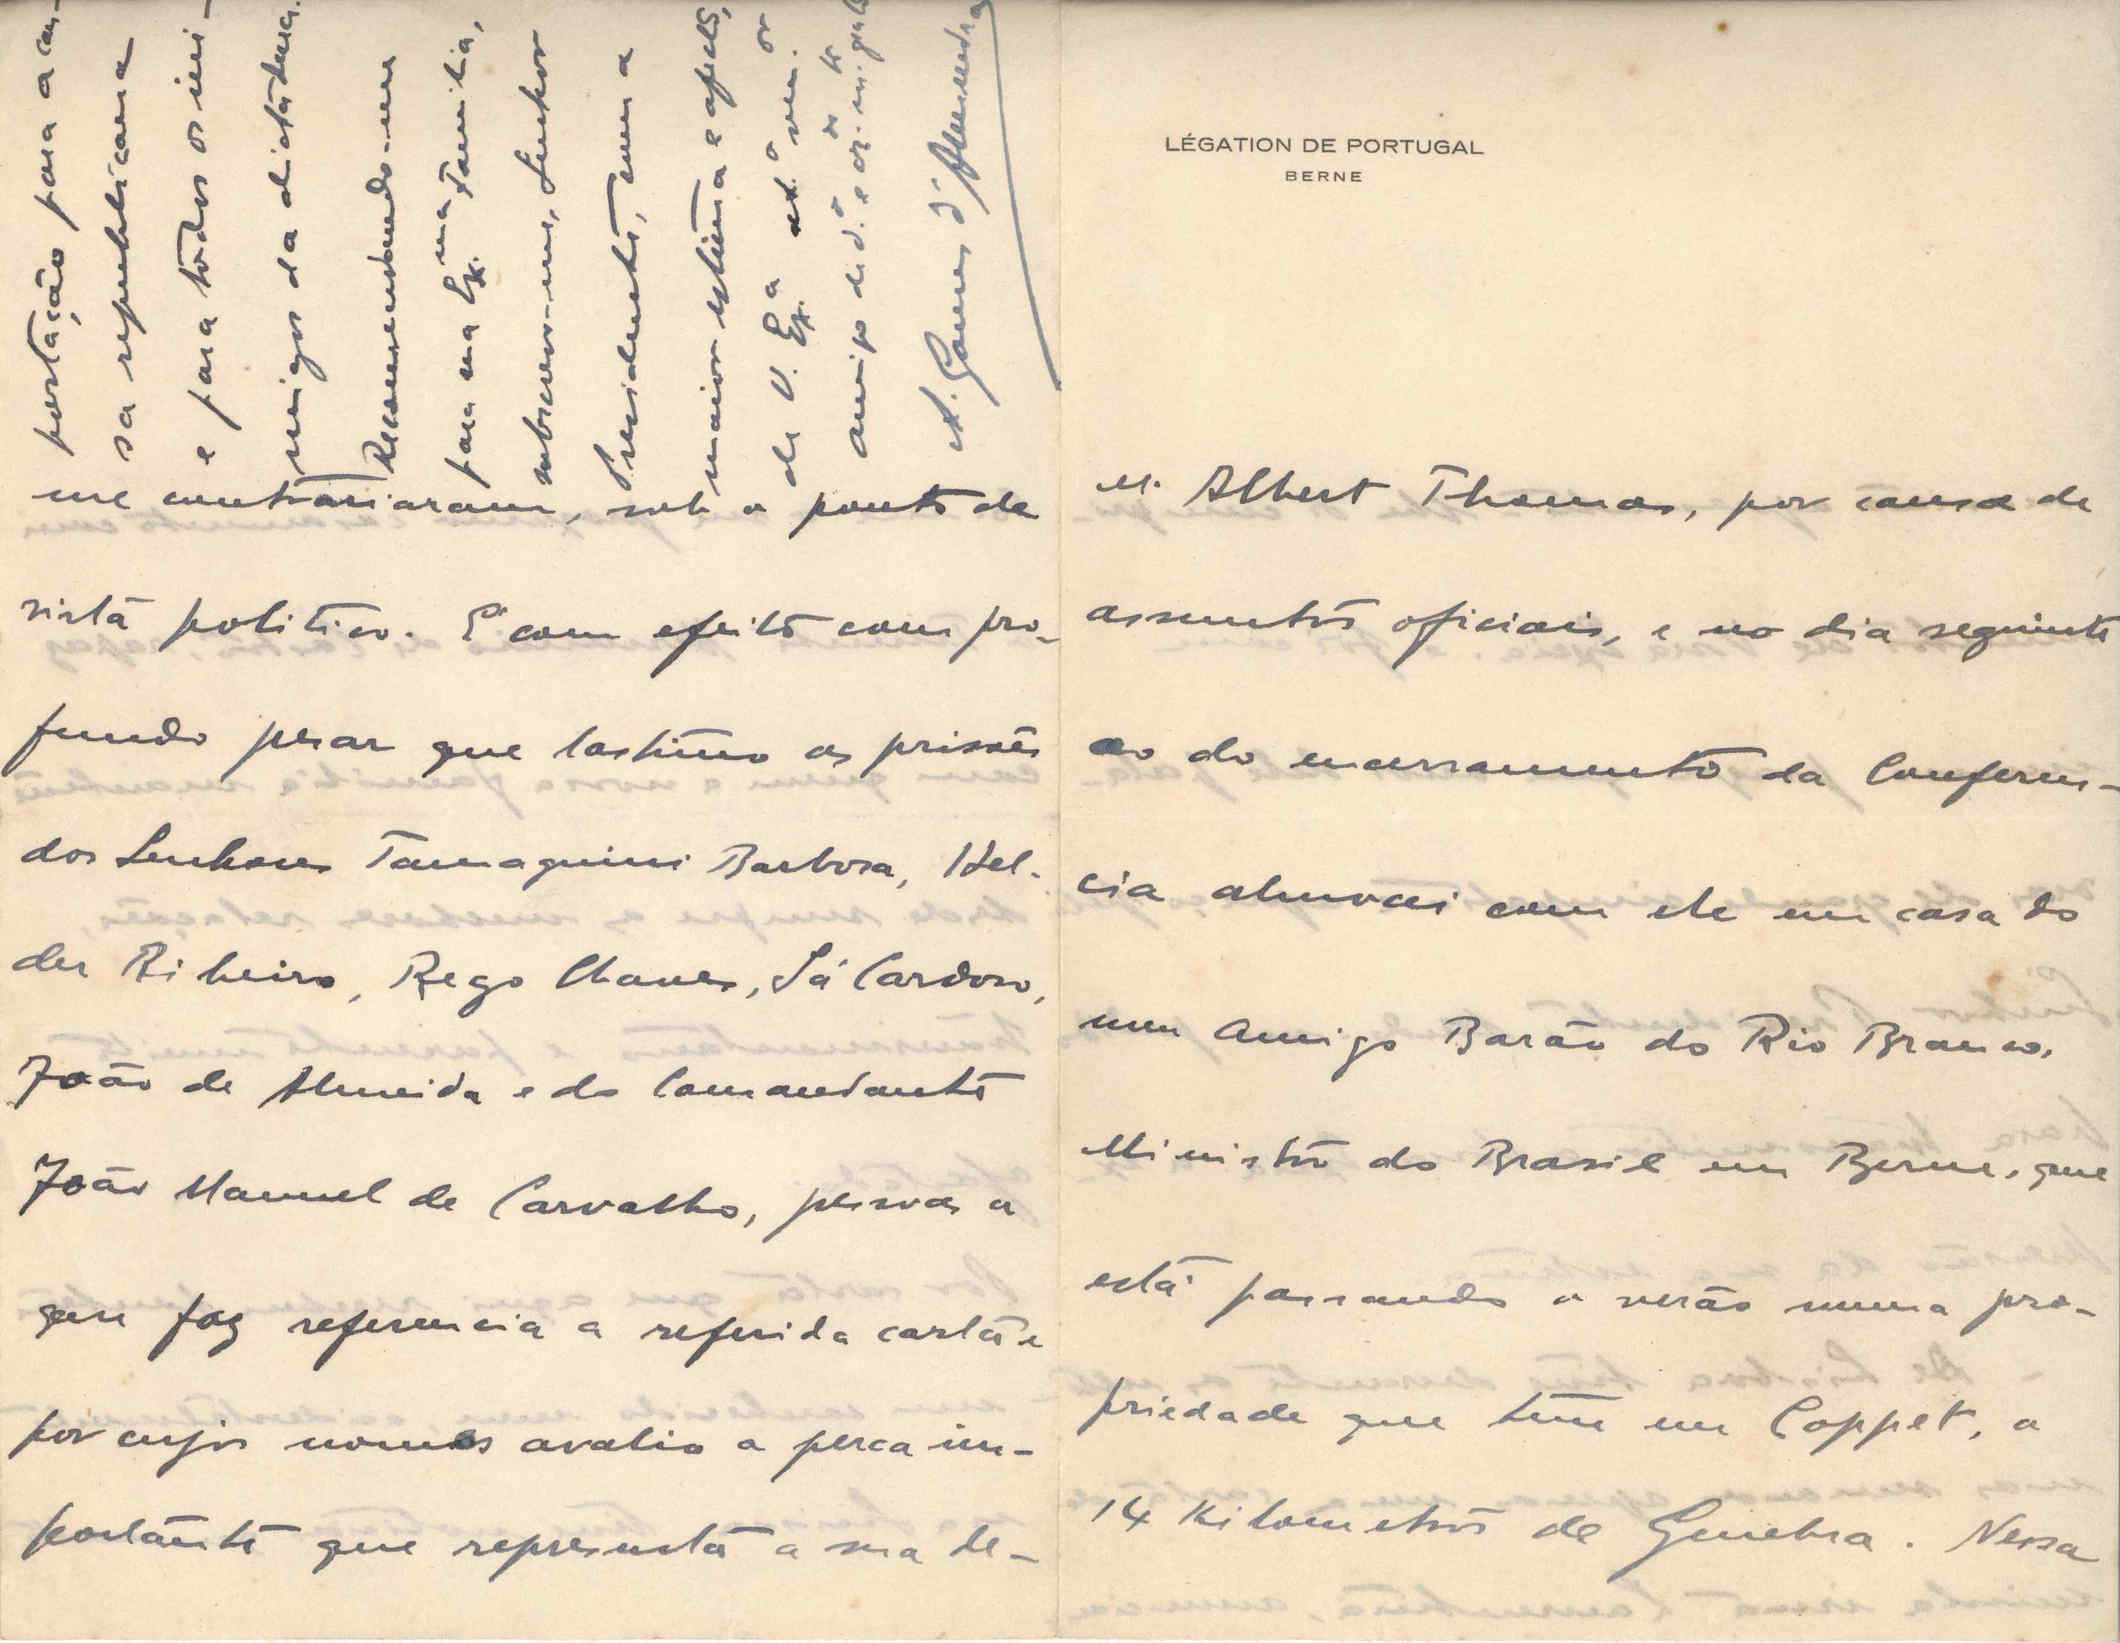 LÉGATION DE PORTUGAL
BERNE
M. Albert Thomas, por causa de
assuntos oficiais, e no dia seguinte
ao do encerramento da Conferen-
cia almocei com ele em casa do
meu Amigo Barão do Rio Branco,
Ministro do Brasil em Berne, que
está passando o verão numa pro-
priedade que tem em Coppet, a
14 Kilometros de Genebra. Nessa
me contrariaram, sob o ponto de
vista politico. É com efeito com pro-
fundo pesar que lastimo as prisões
dos Senhores Tamagnini Barbosa, Hel-
der Ribeiro, Rego Chaves, Sá Cardoso,
João de Almeida e do Comandante
João Manuel de Carvalho, pessoas a
que faz referencia a referida carta e
por cujos nomes avalio a perca im-
portante que representa a sua de-
portação para a cau-
sa republicana
e para todos os ini-
migos da dictadura.
Recomendando-me
para sua Ex.ma Familia,
subscrevo-me, Senhor
Presidente, com a
maior estima e apreço,
de V. Ex.a at.o ven.or
amigo ded.o e
A. Gomes d'Almendra